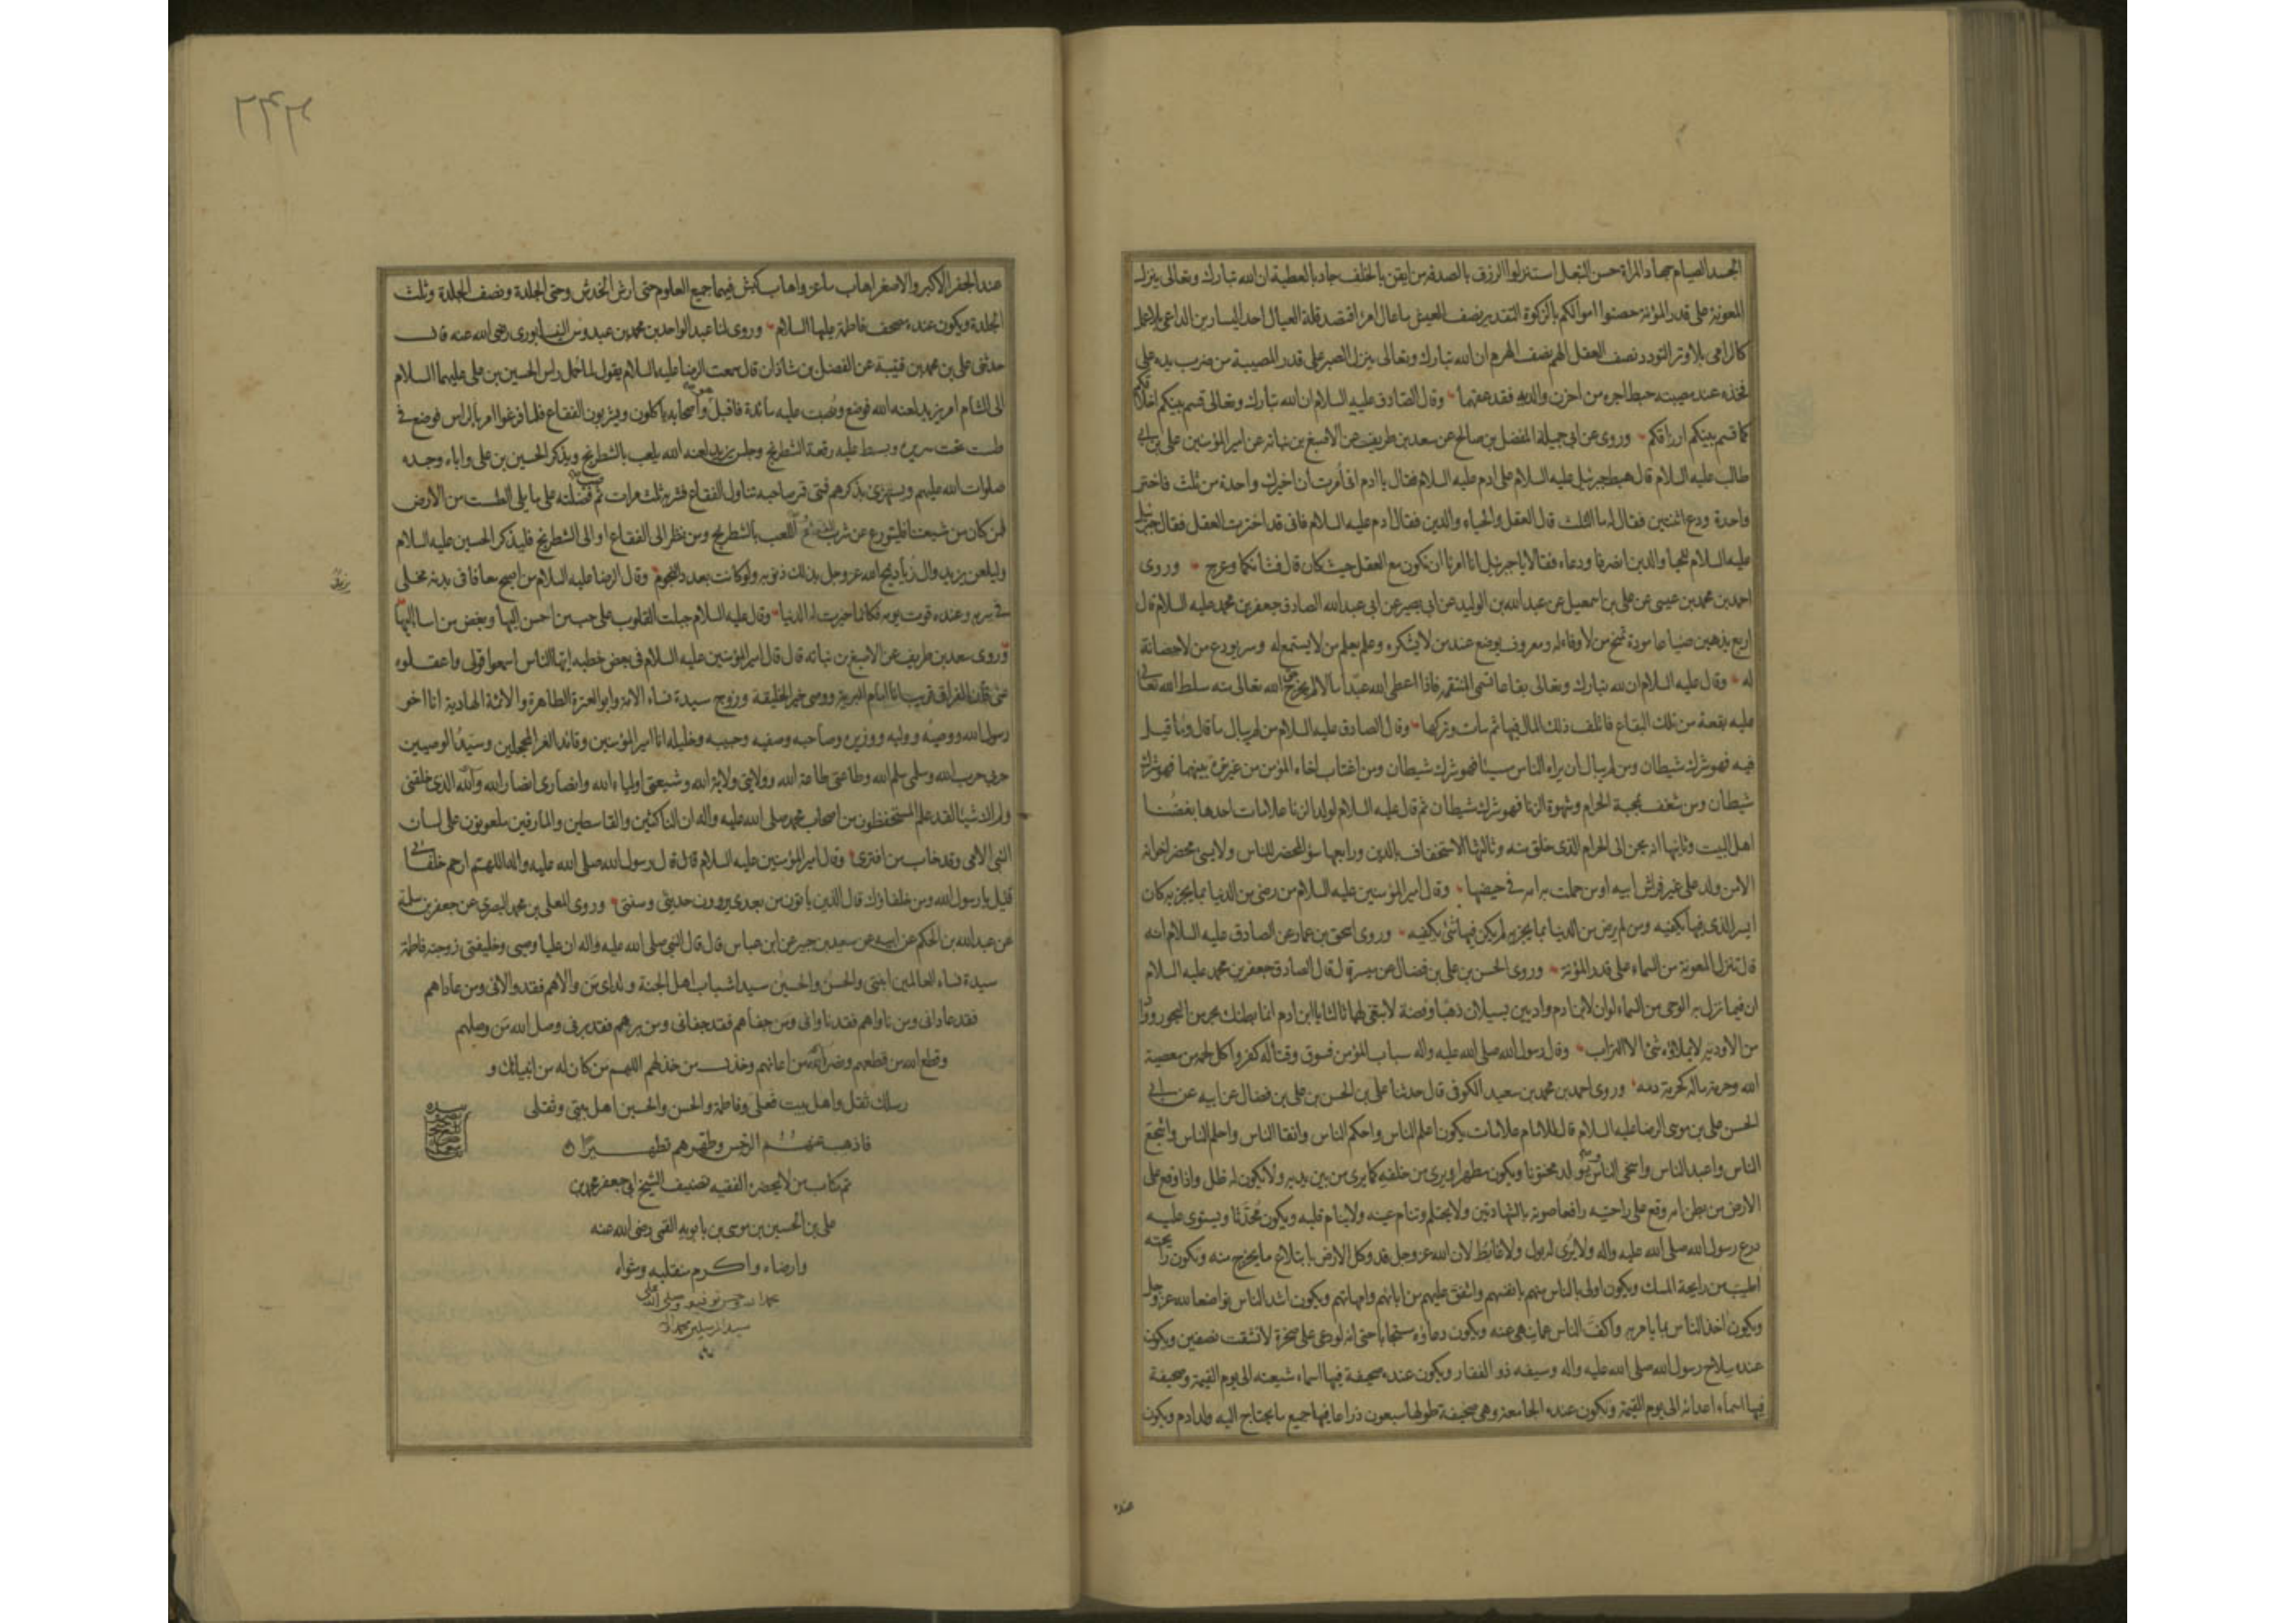 الجسد الصيام جهاد المراة حسن التبعل استنزلوا الرزق بالصدقة من ايقن بالخلف جاد بالعطية ان الله تبارك وتعالى ينزل
المعونة على قدر المؤنة حصنوا اموالكم بالزكوة التقدير نصف العيش ما عال امرؤ اقتصد قلة العيال احد اليسارين الداعي بلا عمل
كالرامي بلا وتر التودد نصف العقل الهم نصف الهرم ان الله تبارك وتعالى ينزل الصبر على قدر المصيبة من ضرب يده على
فخذه عند مصيبته حبط اجره من احزن والديه فقد عقهما وقال الصادق عليه السلام ان الله تبارك وتعالى قسم بينكم اخلاقكم
كما قسم بينكم ارزاقكم وروى عن ابي جميلة المفضل بن صالح عن سعد بن طريف عن الاصبغ بن نباتة عن امير المؤمنين علي بن ابي
طالب عليه السلام قال هبط جبرئيل عليه السلام على ادم عليه السلام فقال يا ادم اني امرت ان اخيرك واحدة من ثلث فاختر
واحدة ودع اثنتين فقال له ما الثلث قال العقل والحياء والدين فقال ادم عليه السلام فاني قد اخترت العقل فقال جبرئيل
عليه السلام للحيا والدين انصرفا ودعاه فقالا يا جبرئيل انا امرنا ان نكون مع العقل حيث كان قال فشانكما وعرج وروى
احمد بن محمد بن عيسى عن علي بن اسمعيل عن عبد الله بن الوليد عن ابي بصير عن ابي عبد الله الصادق جعفر بن محمد عليه السلام قال
اربع يذهبن ضياعا مودة تمنح من لا وفاء له ومعروف يوضع عند من لا يشكره وعلم يعلم من لا يستمع له وسر يودع من لا حضانة
له وقال عليه السلام ان لله تبارك وتعالى بقاعا تسمى المنتقمه فاذا اعطى الله عبدا مالا لم يخرج حق الله تعالى منه سلط الله تعالى
عليه بقعة من تلك البقاع فاتلف ذلك المال فيها ثم مات وتركها وقال الصادق عليه السلام من لم يبال ما قال وما قيل
فيه فهو شرك شيطان ومن لم يبال ان يراه الناس مسيئا فهو شرك شيطان ومن اغتاب اخاه المؤمن من غير ترة بينهما فهو شرك
شيطان ومن شغف بمحبة الحرام وشهوة الزنا فهو شرك شيطان ثم قال عليه السلام لولد الزنا علامات احدها بغضنا
اهل البيت وثانيها انه يحن الى الحرام الذي خلق منه وثالثها الاستخفاف بالدين ورابعها سوء المحضر للناس ولا يسيئ محضر اخوانه
الا من ولد على غير فراش ابيه او من حملت به امه في حيضها وقال امير المؤمنين عليه السلام من رضي من الدنيا بما يجزيه كان
ايسر الذي فيها يكفيه ومن لم يرض من الدنيا بما يجزيه لم يكن فيها شئ يكفيه وروى اسحق بن عمار عن الصادق عليه السلام انه
قال تنزل المعونة من السماء على قدر المؤنة وروى الحسن بن علي بن فضال عن ميسر قال قال الصادق جعفر بن محمد عليه السلام
ان فيما نزل به الوحي من السماء لو ان لابن ادم واديين يسيلان ذهبا وفضة لابتغى لهما ثالثا يا ابن ادم انما بطنك بحر من البحور وواد
من الاودية لا يملاؤه شئ الا التراب وقال رسول الله صلى الله عليه واله سباب المؤمن فسوق وقتاله كفر واكل لحمه من معصية
الله وحرمة ماله كحرمة دمه وروى احمد بن محمد بن سعيد الكوفي قال حدثنا علي بن الحسن بن علي بن فضال عن ابيه عن ابي
الحسن علي بن موسى الرضا عليه السلام قال للامام علامات يكون اعلم الناس واحكم الناس واتقا الناس واحلم الناس واشجع
الناس واعبد الناس واسخى الناس ويولد مختونا ويكون مطهرا ويرى من خلفه كما يرى من بين يديه ولا يكون له ظل واذا وقع على
الارض من بطن امه وقع على راحتيه رافعا صوته بالشهادتين ولا يحتلم وتنام عينه ولا ينام قلبه ويكون محدثا ويستوى عليه
درع رسول الله صلى الله عليه واله ولا يرى له بول ولا غائط لان الله عز وجل قد وكل الارض بابتلاع ما يخرج منه وتكون رايحته
اطيب من رايحة المسك ويكون اولى بالناس منهم بانفسهم واشفق عليهم من ابائهم وامهاتهم ويكون اشد الناس تواضعا لله عز وجل
ويكون اخذ الناس بما يامر به واكف الناس عما ينهى عنه ويكون دعاؤه مستجابا حتى انه لو دعى على صخرة لانشقت نصفين ويكون
عنده سلاح رسول الله صلى الله عليه واله وسيفه ذو الفقار ويكون عنده صحيفة فيها اسماء شيعته الى يوم القيمة وصحيفة
فيها اسماء اعدائه الى يوم القيمة وتكون عنده الجامعة وهي صحيفة طولها سبعون ذراعا فيها جميع ما يحتاج اليه ولد ادم ويكون
عنده
عند الجفر الاكبر والاصغر اهاب ماعز واهاب كبش فيهما جميع العلوم حتى ارش الخدش وحتى الجلدة ونصف الجلدة وثلث
الجلدة ويكون عنده مصحف فاطمة عليها السلام وروى لنا عبد الواحد بن محمد بن عبدوس النيسابوري رضى الله عنه قال
حدثني علي بن محمد بن قتيبة عن الفضل بن شاذان قال سمعت الرضا عليه السلام يقول لما حمل راس الحسين بن علي عليهما السلام
الى الشام امر يزيد لعنه الله فوضع ونصبت عليه مائدة فاقبل هو واصحابه ياكلون ويشربون الفقاع فلما فرغوا امر بالراس فوضع في
طست تحت سريره وبسط عليه رقعة الشطرنج وجلس يزيد لعنه الله يلعب بالشطرنج ويذكر الحسين بن علي واباه وجده
صلوات الله عليهم ويستهزئ بذكرهم فمتى قمر صاحبه تناول الفقاع فشربه ثلث مرات ثم صب فضلته على ما يلي الطست من الارض
فمن كان من شيعتنا فليتورع عن شرب الفقاع واللعب بالشطرنج ومن نظر الى الفقاع او الى الشطرنج فليذكر الحسين عليه السلام
وليلعن يزيد وال زياد يمح الله عز وجل بذلك ذنوبه ولو كانت بعدد النجوم وقال الرضا عليه السلام من اصبح معافا في بدنه مخلى
في سربه وعنده قوت يومه فكانما خيرت له الدنيا وقال عليه السلام جبلت القلوب على حب من احسن اليها وبغض من اسا اليها
وروى سعد بن طريف عن الاصبغ بن نباته قال قال امير المؤمنين عليه السلام في بعض خطبه ايها الناس اسمعوا قولي واعقلوه
عني فان الفراق قريب انا امام البرية ووصي خير الخليقة وزوج سيدة نساء الامة وابو العترة الطاهرة والائمة الهادية انا اخو
رسول الله ووصيه ووليه ووزيره وصاحبه وصفيه وحبيبه وخليله انا امير المؤمنين وقائد الغر المحجلين وسيد الوصيين
حربي حرب الله وسلمي سلم الله وطاعتي طاعة الله وولايتي ولاية الله وشيعتي اولياء الله وانصاري انصار الله والله الذي خلقني
ولم اك شيئا لقد علم المستحفظون من اصحاب محمد صلى الله عليه واله ان الناكثين والقاسطين والمارقين ملعونون على لسان
النبي الامي وقد خاب من افترى وقال امير المؤمنين عليه السلام قال قال رسول الله صلى الله عليه واله اللهم ارحم خلفائي
قيل يا رسول الله ومن خلفاؤك قال الذين ياتون من بعدي يروون حديثي وسنتي وروى المعلى بن محمد البصري عن جعفر بن سلمة
عن عبد الله بن الحكم عن ابيه عن سعيد بن جبير عن ابن عباس قال قال النبي صلى الله عليه واله ان عليا وصيي وخليفتي زوجته فاطمة
سيدة نساء العالمين ابنتي والحسن والحسين سيدا شباب اهل الجنة ولداي من والاهم فقد والاني ومن عاداهم
فقد عاداني ومن ناواهم فقد ناواني ومن جفاهم فقد جفاني ومن برهم فقد برني وصل الله من وصلهم
وقطع الله من قطعهم ونصر الله من اعانهم وخذل من خذلهم اللهم من كان له من انبيائك و
رسلك ثقل واهل بيت فعلي وفاطمة والحسن والحسين اهل بيتي وثقلي
فاذهب عنهم الرجس وطهرهم تطهيرا
تم كتاب من لا يحضره الفقيه تصنيف الشيخ ابي جعفر محمد بن
علي بن الحسين بن موسى بن بابويه القمي رضى الله عنه
وارضاه واكرم منقلبه ومثواه
بحمد الله وحسن توفيقه وصلى الله على
سيد المرسلين محمد واله